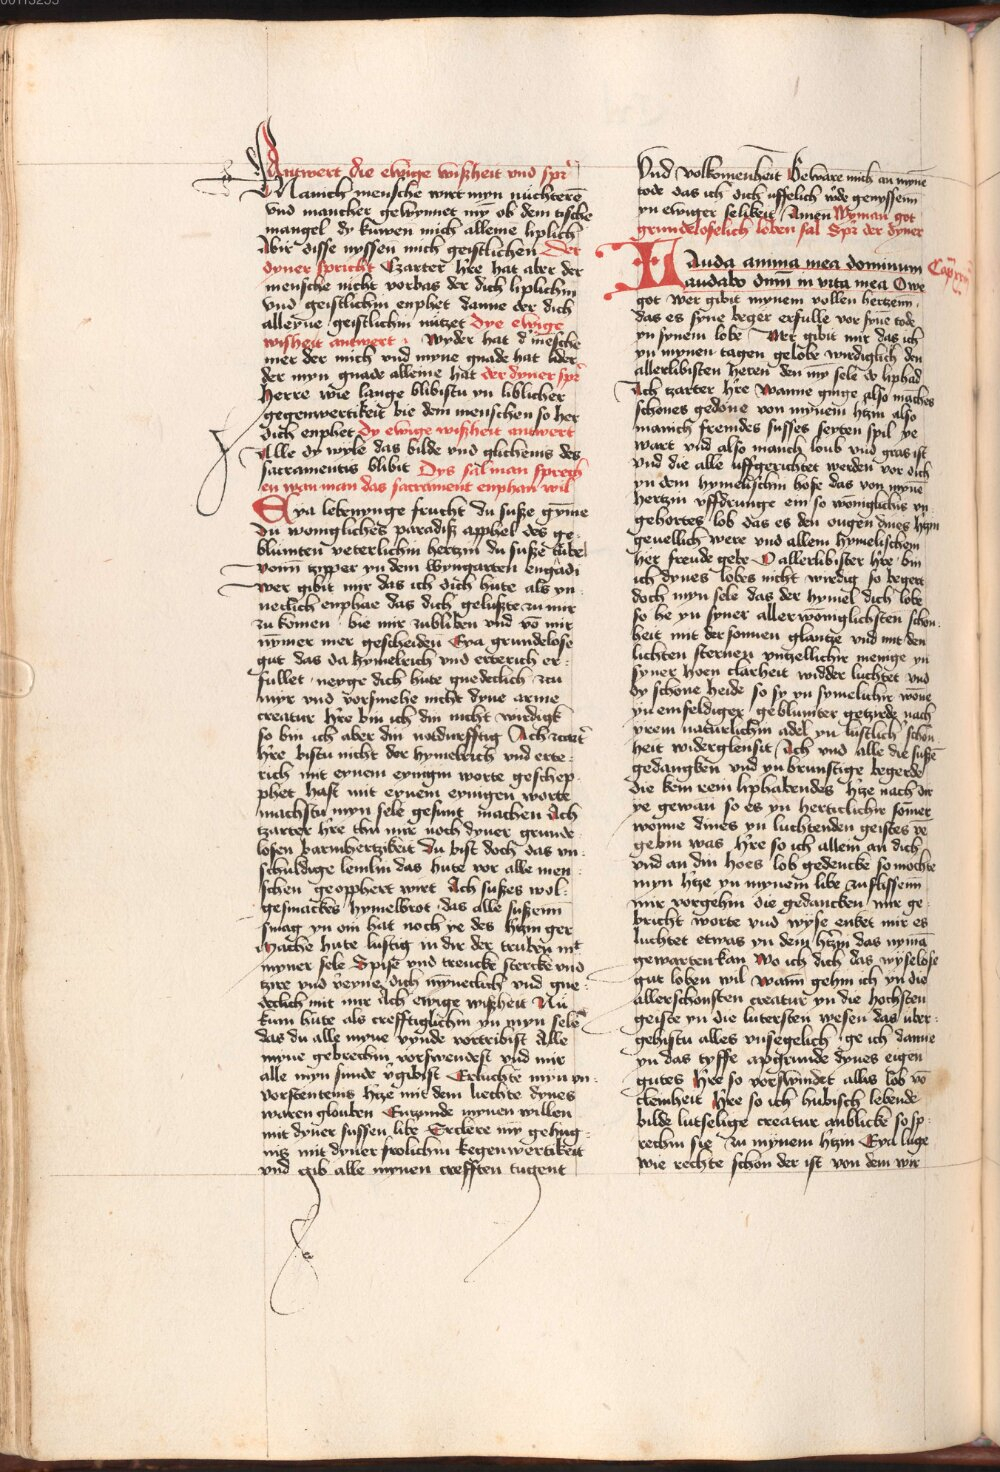 00113255
Antwert die ewige wißheit vnd spͬ
Manich mensche wirt myn nuchterē
vnd mancher gewynnet mȳ ob dem tische
mangel dy kuwen mich alleine liplich
Abir disse nyssen mich geistlichen Der
dyner spricht Czarter hʼre hat aber der
mensche nicht vorbas der dich liplichin
vnd geistlichin enphet danne der dich
alleyne geistlichin nützet Dye ewige
wisheit antwert Wyder hat dʼ mēsche
mer der mich vnd myne gnade hat ader
der myn gnade alleine hat der dyner spͬ
herre wie lange blibistu yn liblicher
gegenwertikeit bie dem menschen so her
dich enphet dy ewige wißheit antwert
Alle dy wyle das bilde vnd glichenis des
sacramentis blibit Dys sal man sprech
en wan man das sacrament enphan wil
Eya lebenynge frucht du suße gȳme
du woniglichес paradiß apphel des ge
blumten veterlichin hertzin du suße tube
vonn zipper yn dem wyngarten engadi
wer gibit mir das ich dich hute als yn
neclich enphae das dich geluste zu mir
zu komen bie mir zubliben vnd vō mir
nȳmer mer gescheiden Eya grundelose
gut das da hymelrich vnd ertrich er
fullet neyge dich hute gnedeclich zcu
myr vnd vorsmehe nicht dyne arme
creatur hʼre bin ich din nicht wirdigk
so bin ich aber din notdurfftig Ach zartʼ
hʼre bistu nicht der hymelrich vnd erte
rich mit eynem eynigin worte geschep
phet hast mit eynem eynigen worte
machstu myn sele gesunt machen Ach
tzarter hʼre thu mir noch dyner grunde
losen barmhertzikeit Du bist doch das vn
schuldige lemlin das hute vor alle men
schen geopphert wirt Ach sußes wol
gesmackes hymelbrot das alle sußenn
smag yn om hat noch ye des hʼtzin ger
Mache hute lustig in dir der truben mͭ
myner sele Spise vnd trencke stercke vnd
tzire vnd veyne dich ynneclich vnd gne
declich mit mir Ach ewige wißheit Nu
kum hute als crefftiglichin yn myn sele
das du alle myne vynde vortribist Alle
myne gebrechin vorswendest vnd mir
alle myn sunde vʼgibist Erluchte myn vn
vorstentenis hʼtze mit dem liechte dynes
waren glouben Enzunde mynen willen
mit dyner sussen libe Erclere mȳ gehug
nis mit dyner frolichin kegenwertikeit
vnd gib alle mynen crefften tugent
Vnd volkomenheit Beware mich an mynē
tode das ich dich offelich wʼde genyssenn
yn ewiger selikeit Amen Wyman got
grundeloselich loben sal Spͬ der dyner
Lauda anima mea dominum
laudabo dnm̄ in vita mea Owe
got wer gibit mynem vollen hertzenn
das es syne beger erfulle vor synē tode
yn synem lobe Wer gibit mir das ich
yn mynen tagen gelobe wirdiglich den
allerlibisten heren den mȳ sele do liphad
Ach tzarter hʼre Wanne ginge also maches
schones gedone von mynem hʼtzin also
manich fremdes susses seyten spil ye
wart vnd also manch loub vnd gras ist
vnd die alle vffgerichtet werden vor dich
yn dem hymelischin hofe das von mynē
hertzin vffdrunge ein so woniglichis vn
gehortes lob das es den ougen dines hʼtzin
geuellich were vnd allem hymelischem
her freude gebe O allerlibister hʼre bin
ich dynes lobes nicht wirdig so begert
doch myn sele das der hymel dich lobe
so he yn syner allerwoniglichsten schon
heit mit der sonnen glantze vnd mit den
lichten sternen vntzellichir menige yn
syner hoen clarheit widder luchtet vnd
dy schone heide so sy yn symelichir wōne
yn einfeldiger geblumter getzirde nach
yrem naturlichin adel yn lustlichʼ schon
heit widerglensit Ach vnd alle die sußē
gedangken vnd yn brunstige begerde
die kein rein liphabendes hʼtze nach dir
ye gewan so es yn herticlichir somer
wonne dines yn luchtenden geistes vē
gebin was Hʼre so ich allein an dich
vnd an din hoes lob gedencke so mochte
myn hʼtze yn mynem libe zuflissenn
mir vorgehin die gedancken mir ge
bricht worte vnd wyse enket mir es
luchtet etwas yn dem hʼtzin das nymā
gewarten kan Wo ich dich das wyselose
gut loben wil Wann gehin ich yn die
allerschonsten creatur yn die hochsten
geiste yn die lutersten wesen das uber
gehistu alles vnsegelich ge ich danne
yn das tyffe apgrunde dynes eigen
gutes hʼre so vorswindet allis lob vō
cleinheit Hʼre so ich hubisch lebende
bilde lutselige creatur anblicke so sp
rechin sie zu mynem hʼtzin Eya luge
wie rechte schon der ist von dem wir